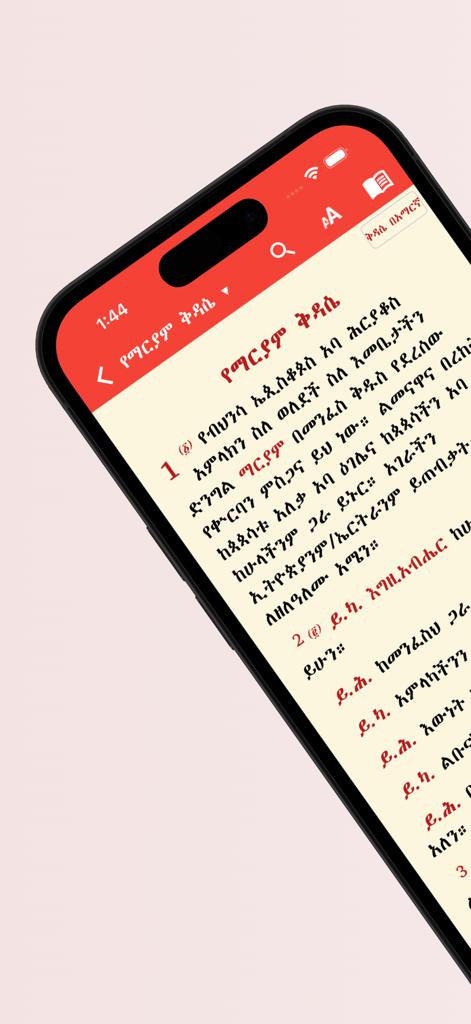 1:44
የማርያም ቅዳሴ ▼
ቅዳሴ በአማርኛ
የማርያም ቅዳሴ
1 (፩) የብህንሳ ኤጲስቆጶስ አባ ሕርያቆስ
አምላክን ስለ ወለደች ስለ እመቤታችን
ድንግል ማርያም በመንፈስ ቅዱስ የደረሰው
የቍርባን ምስጋና ይህ ነው። ልመናዋና በረከቷ
ከጳጳሳቱ አለቃ አባ ዕገሌና ከጳጳሳችን አባ
ከሁላችንም ጋራ ይኑር። አገራችን
ኢትዮጵያንም/ኤርትራንም ይጠብቃት
ለዘለዓለሙ አሜን።
2 (፪) ይ.ካ. እግዚአብሔር
ይሁን።
ይ.ሕ. ከመንፈስህ ጋራ
ይ.ካ. አምላካችንን
ይ.ሕ. እውነት
ይ.ካ.
ይ.ሕ.
አለን።
3